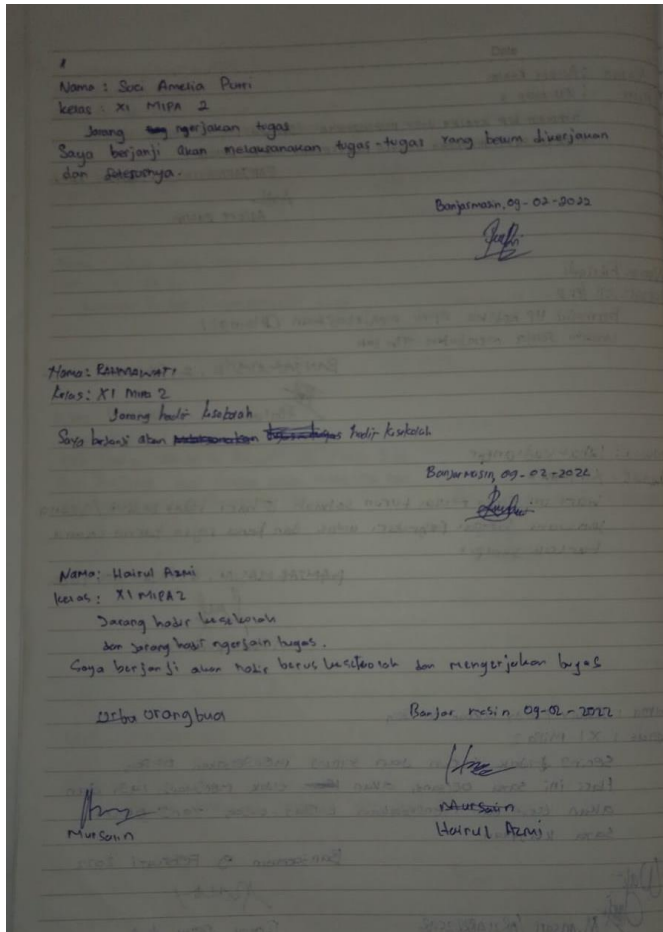 Date
Nama : Suci Amelia Putri
kelas : XI MIPA 2
Jarang ngerjakan tugas
Saya berjanji akan melaksanakan tugas-tugas yang belum dikerjakan
dan seterusnya.
Banjarmasin, 09-02-2022
Nama: RAHMAWATI
Kelas: XI MIPA 2
Jarang hadir kesekolah
Saya berjanji akan hadir kesekolah
Banjarmasin, 09-02-2022
Nama: Hairul Azmi
Kelas : XI MIPA 2
Jarang hadir kesekolah
dan Jarang hadir ngerjain tugas.
Saya berjanji akan hadir terus kesekolah dan mengerjakan tugas
Banjar masin 09-02-2022
Mursalin
Hairul Azmi